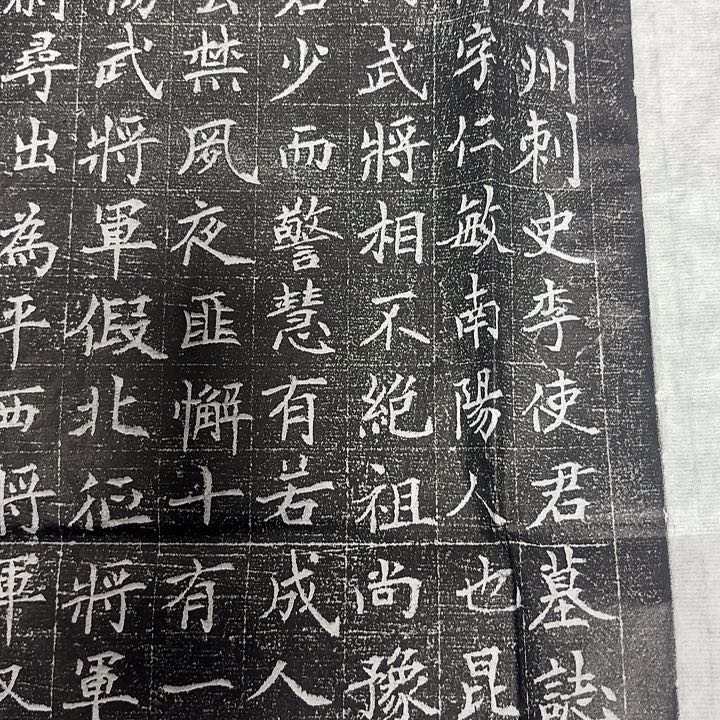 州刺史李使君墓誌
字仁敏南陽人也昆
武將相不絕祖尚豫
少而警慧有若成人
夙夜匪懈斗有一
武將軍假北征將軍
尋出為平西將軍又